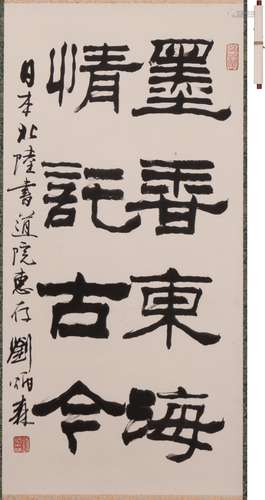 墨香東海
情託古今
日本北陸書道院惠存 劉炳森